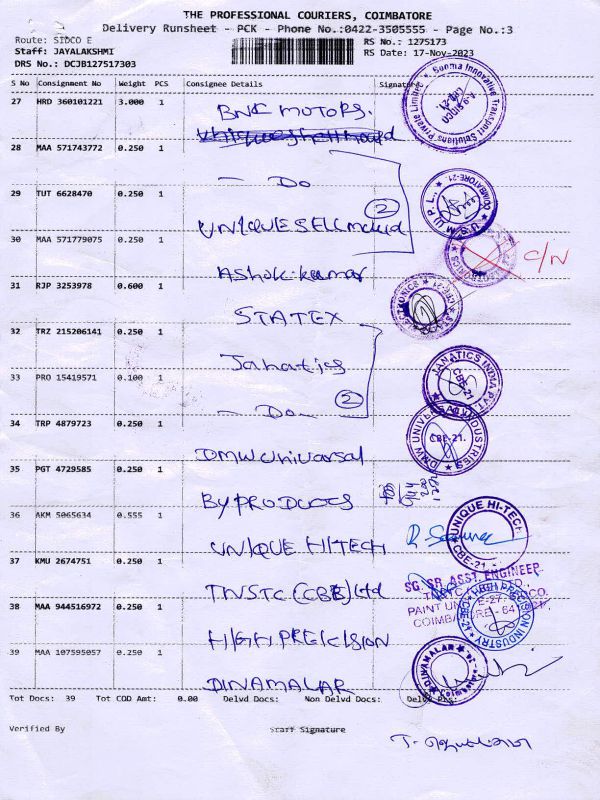 THE PROFESSIONAL COURIERS, COIMBATORE
Delivery Runsheet - PCK - Phone No.:0422-3505555 - Page No.:3
Route: SIDCO E
RS No.: 1275173
Staff: JAYALAKSHMI
RS Date: 17-Nov-2023
DRS No.: DCJB127517303
S No Consignment No Weight PCS Consignee Details Signature
27 HRD 360101221 3.000 1
BNC MOTORS.
28 MAA 571743772 0.250 1
— Do
29 TUT 6628470 0.250 1
2
UNIQUE SELL mould
30 MAA 571779075 0.250 1
C/N
Ashok.kumar
31 RJP 3253978 0.600 1
STATEX
32 TRZ 215206141 0.250 1
Janatics
33 PRO 15419571 0.100 1
2
— Do —
34 TRP 4879723 0.250 1
DMW Univarsal
35 PGT 4729585 0.250 1
BY PRODUCTS
36 AKM 5065634 0.555 1
UNIQUE HITECH
37 KMU 2674751 0.250 1
TNSTC (CBE) Ltd
38 MAA 944516972 0.250 1
HIGH PRECISION
39 MAA 107595057 0.250 1
DINAMALAR
Suoma Innovative Transport Solutions Private Limited
SIDCO
COIMBATORE-21
M.S.D.
JANATICS INDIA PVT
CBE-21
DMW UNIVERSAL INDUSTRIES
CBE-21.
UNIQUE HI-TECH
CBE-21
SG. SR. ASST. ENGINEER
HIGH PRECISION INDUSTRY
CBE-21
DINAMALAR
Tot Docs: 39 Tot COD Amt: 0.00 Delvd Docs: Non Delvd Docs: Delvd Pcs:
Verified By Staff Signature